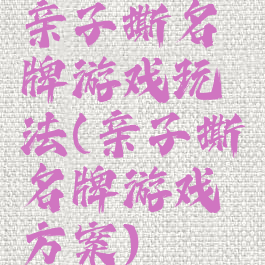 亲子撕名
牌游戏玩
法(亲子撕
名牌游戏
方案)